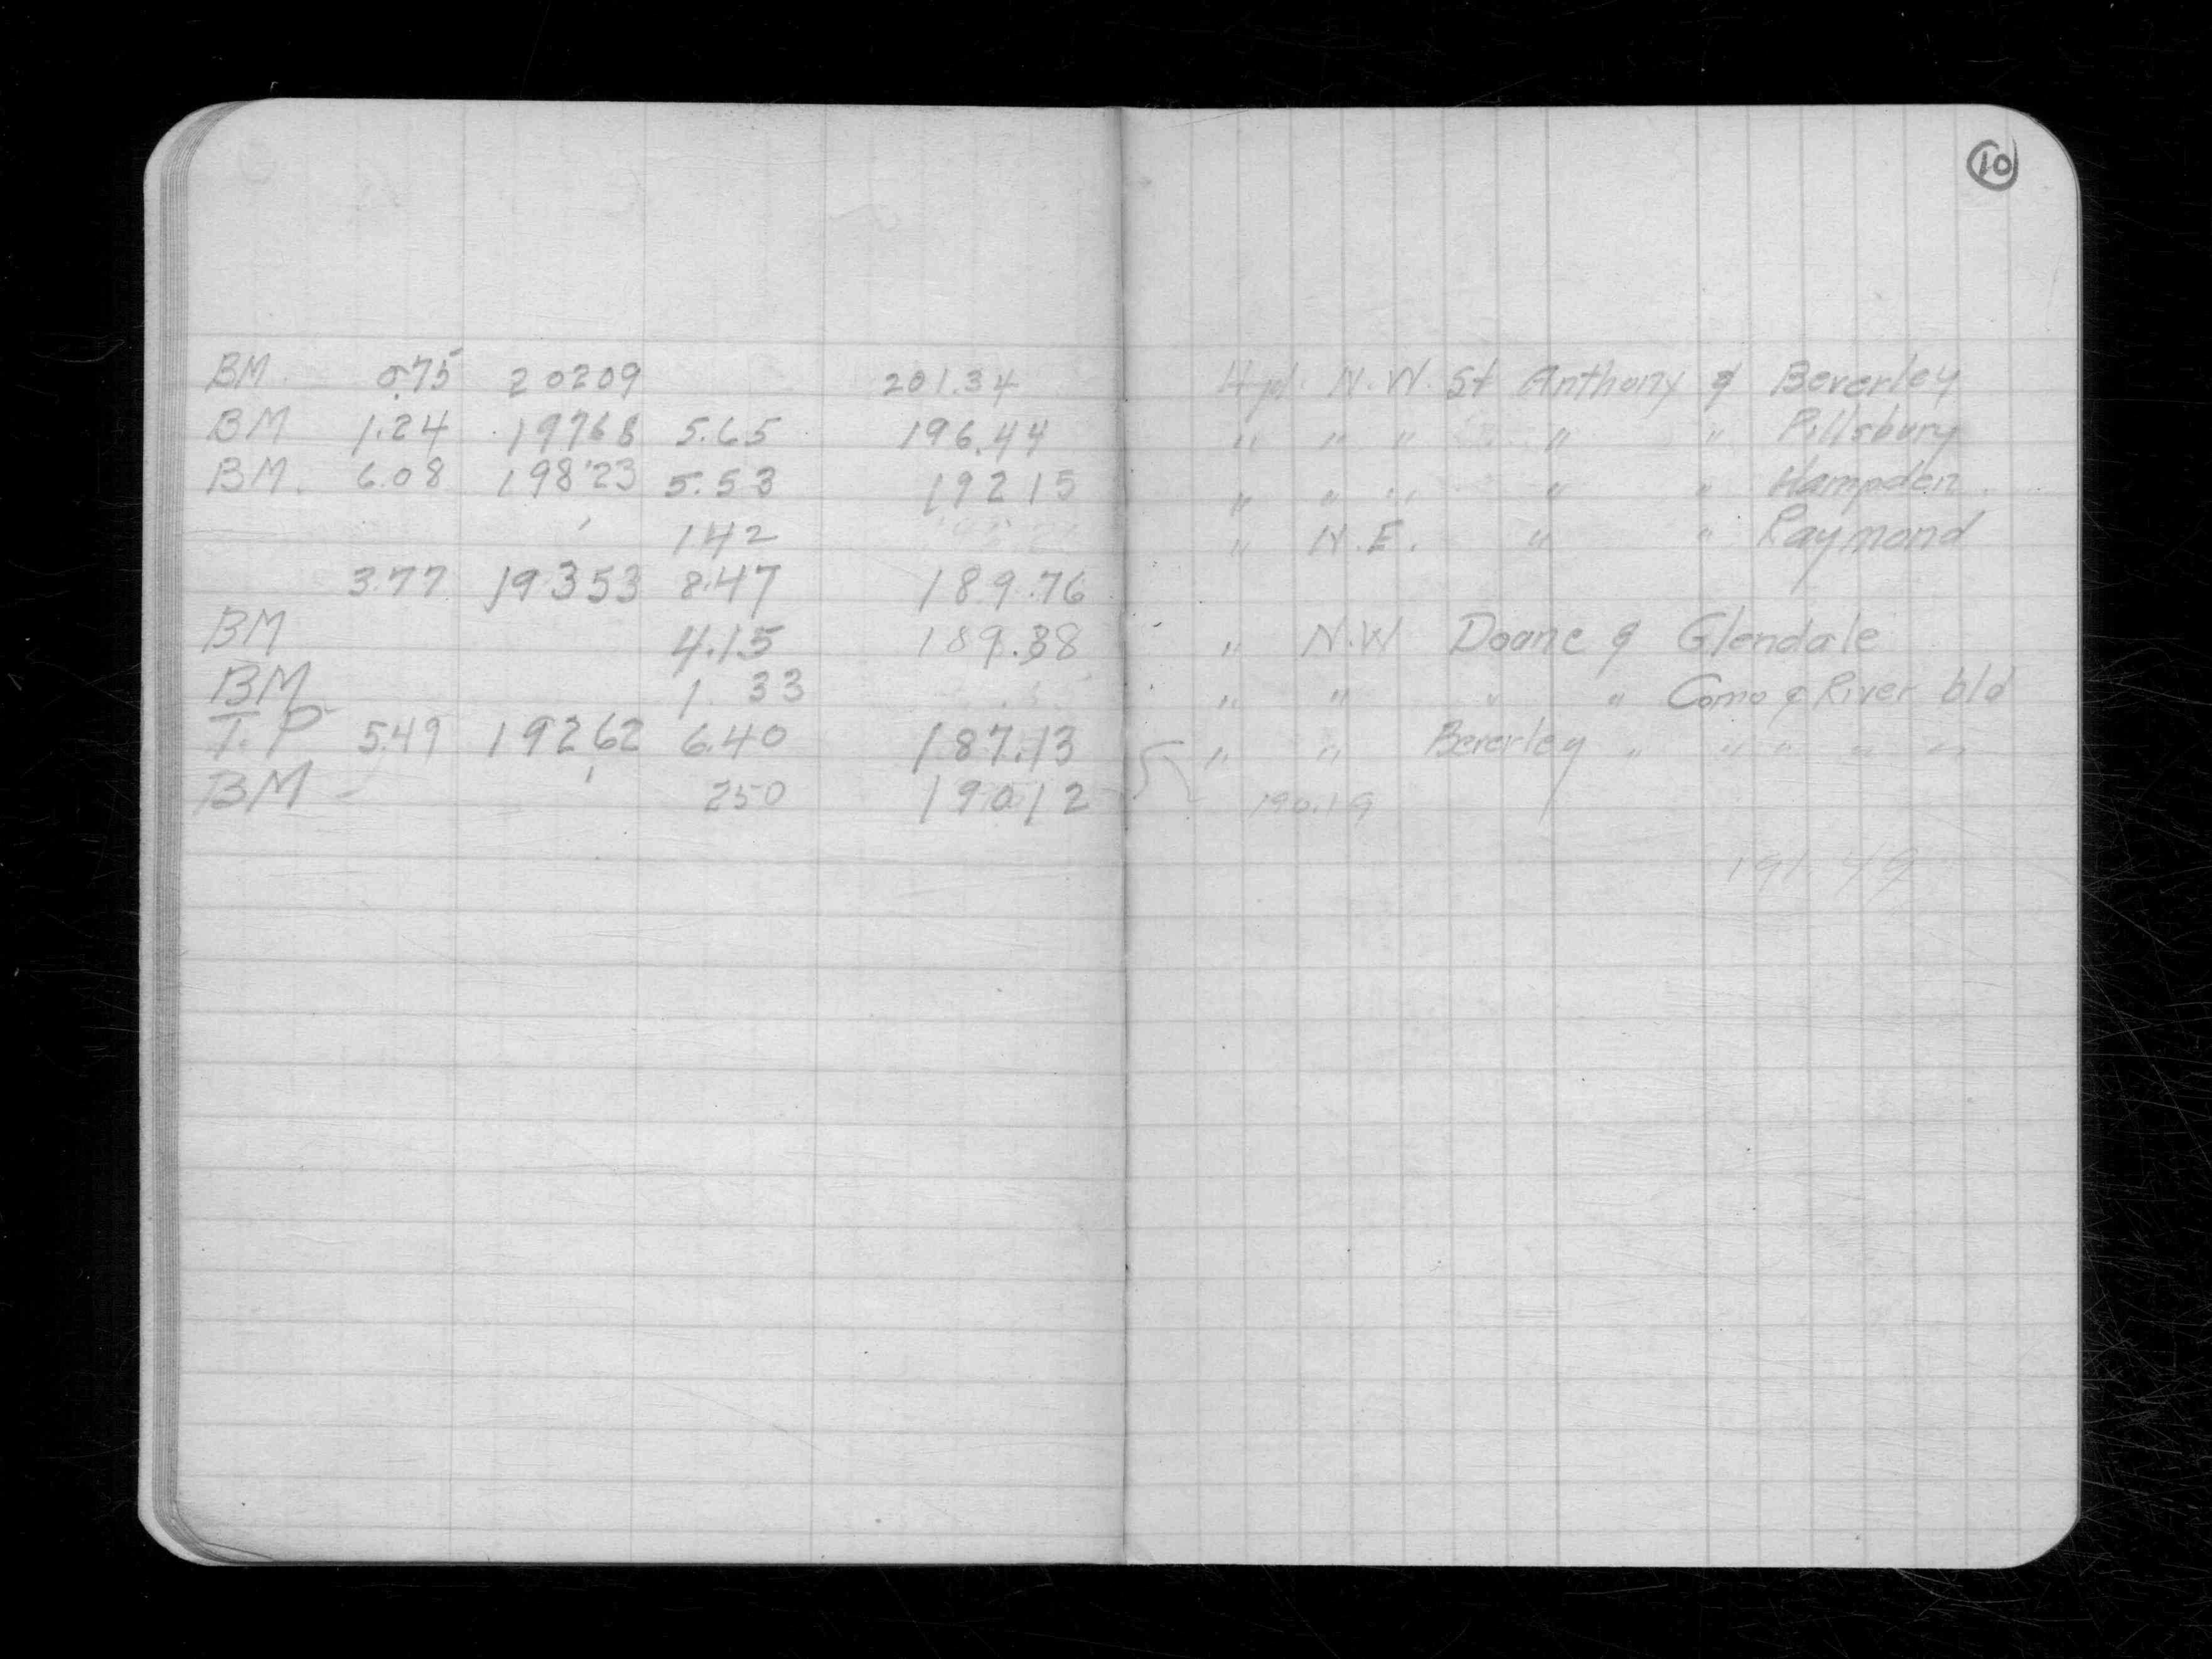 10
BM. 0.75 20209 201.34 Hyd. N.W. St Anthony & Beverley
BM 1.24 19768 5.65 196.44 " " " " " Pillsbury
BM. 6.08 198'23 5.53 19215 " " " " " Hampden
1.42 " N.E. " " Raymond
3.77 19353 8.47 189.76
BM 4.15 189.38 " N.W Doane & Glendale
BM 1.33 " " " " Como & River bld
T.P 5.49 19262 6.40 187.13 " " Beverley " " " " "
BM - 250 19012 190.19
191.49